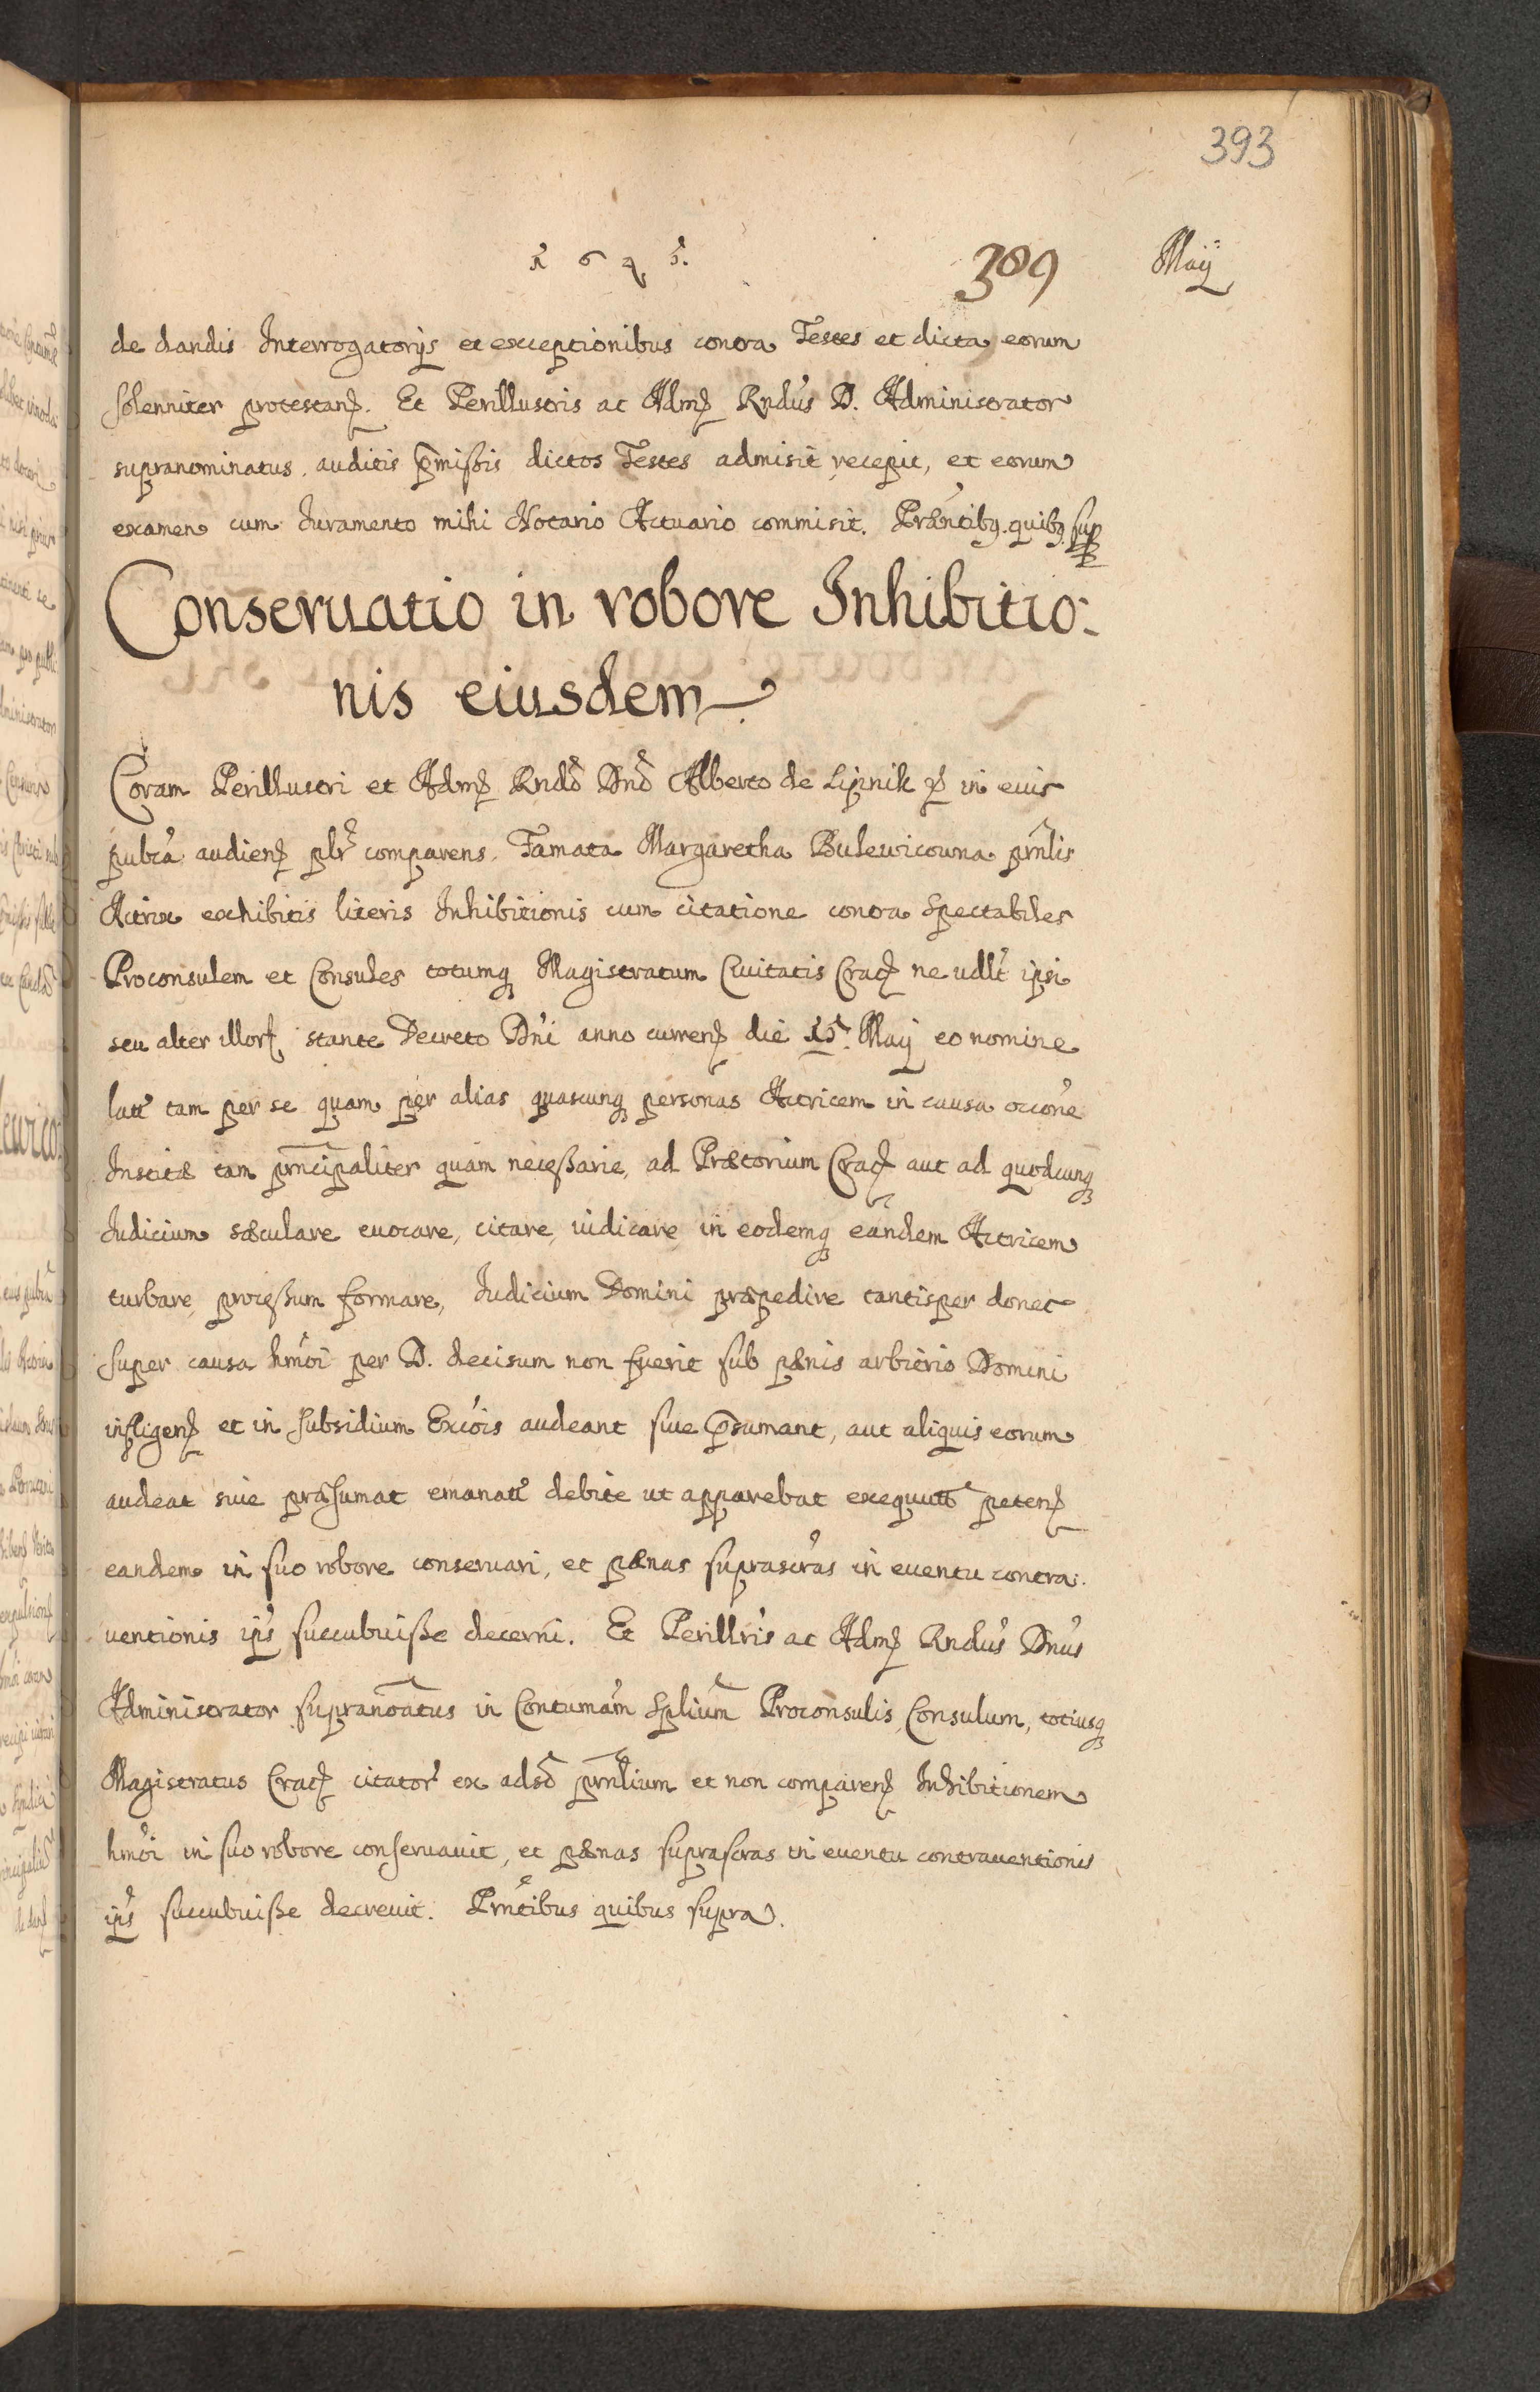 393
1643. 389 Maij
de dandis Interrogatorijs et exceptionibus contra Testes et dicta eorum
solenniter protestan. Et Perillustris ac Adm Rndus D. Administrator
supranominatus auditis pmissis dictos Testes admisit, recepit, et eorum
examen cum Iuramento mihi Notario Actuario commisit. Præntibq. quibq sup
Conseruatio in robore Inhibitio:
nis eiusdem
Coram Perillustri et Adm Rndo Dno Alberto de Lipnik p in eius
pubca audien plr comparens Famata Margaretha Bulewicowna prnlis
Actrix exhibitis literis Inhibitionis cum citatione contra Spectabiles
Proconsulem et Consules totumq Magistratum Ciuitatis Crac ne udlt ipsi
seu alter illor stante Decreto Dni anno curren die 15. Maij eo nomine
latt tam per se quam per alias quascunq personas Actricem in causa occone
Institæ tam prncipaliter quam necessarie, ad Prætorium Crac aut ad quodcunq
Iudicium sæculare euocare, citare, iudicare in eodemq eandem Actricem
turbare, processum formare, Iudicium Domini præpedire tantisper donec
super causa hmoi per D. decisum non fuerit sub pænis arbitrio Domini
infligen et in subsidium Excois audeant siue psumant, aut aliquis eorum
audeat siue præsumat emanatt debite ut apparebat exequutt peten
eandem in suo robore conseruari, et pænas suprascras in euentu contra:
uentionis ijs succubuisse decerni. Et Perillris ac Adm Rndus Dnus
Administrator supranoatus in Contumam Splium Proconsulis, Consulum, totiusq
Magistratus Crac citator ex adso prnlium et non comparen Inhibitionem
hmoi in suo robore conseruauit, et pænas suprascras in euentu contrauentionis
ijs succubuisse decreuit. Prntibus quibus supra.